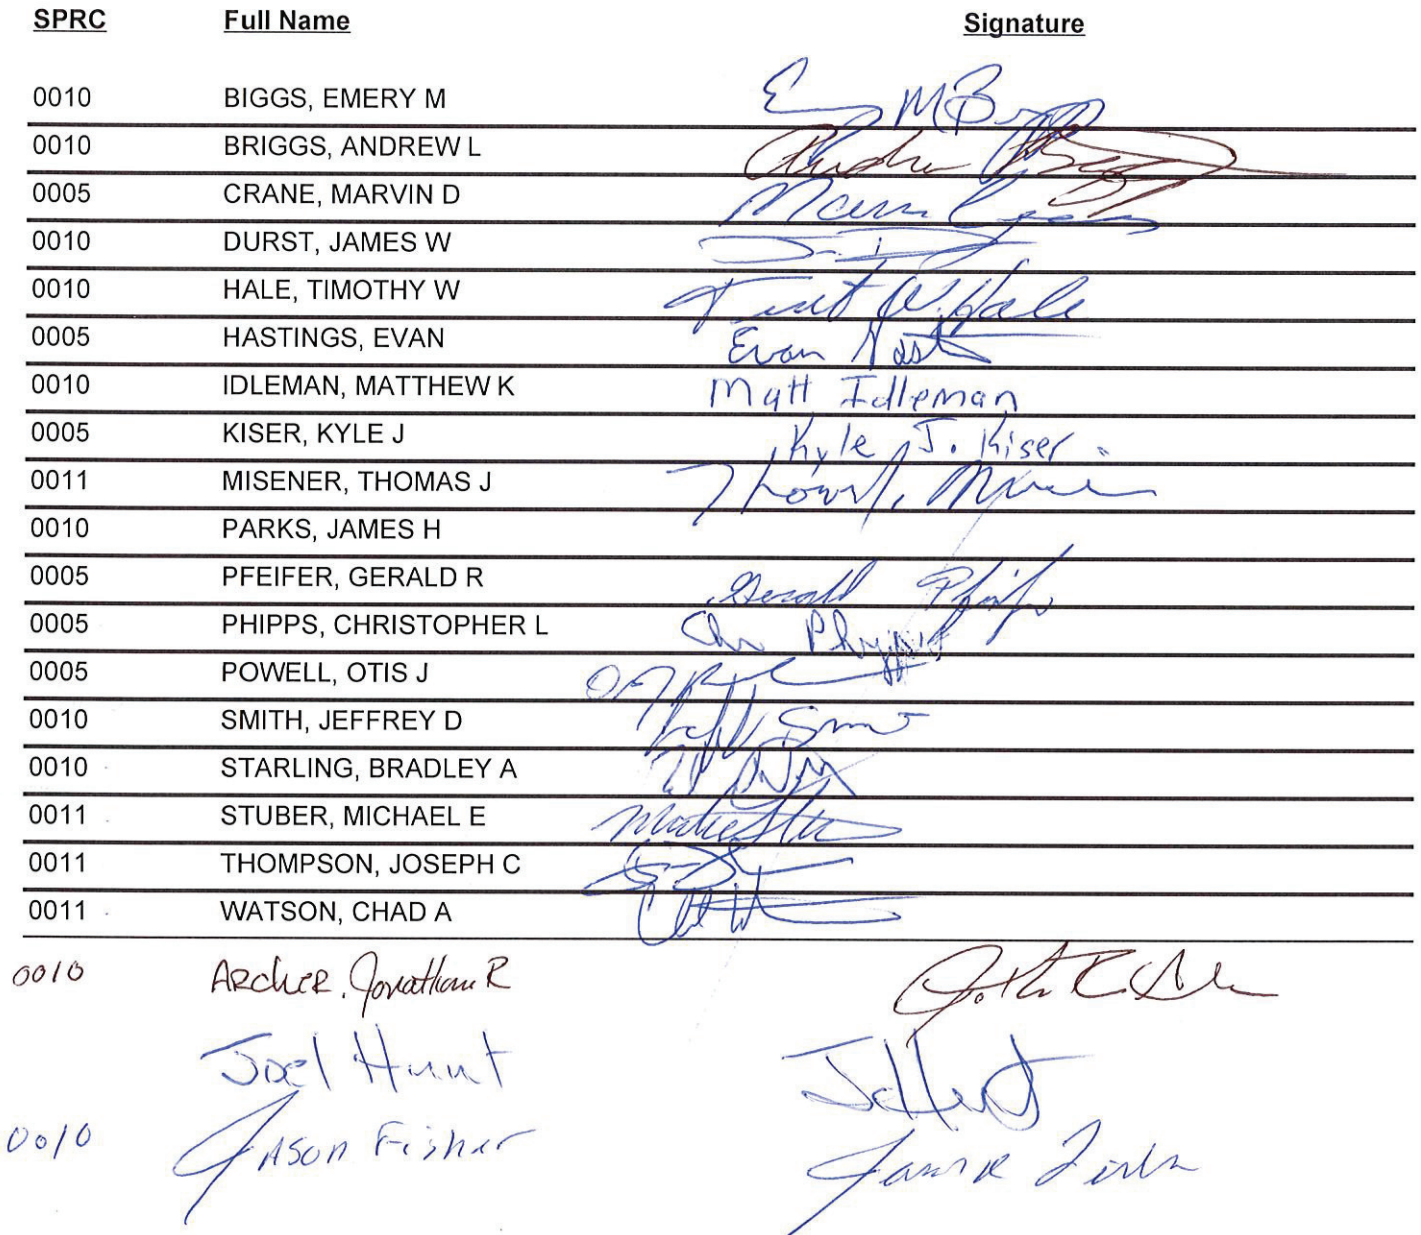 SPRC Full Name Signature
0010 BIGGS, EMERY M E M Biggs
0010 BRIGGS, ANDREW L Andrew Briggs
0005 CRANE, MARVIN D Marvin Crane
0010 DURST, JAMES W
0010 HALE, TIMOTHY W W. Hale
0005 HASTINGS, EVAN Evan Hast
0010 IDLEMAN, MATTHEW K Matt Idleman
0005 KISER, KYLE J Kyle J. Kiser
0011 MISENER, THOMAS J Thomas J. Misener
0010 PARKS, JAMES H
0005 PFEIFER, GERALD R Gerald Pfeifer
0005 PHIPPS, CHRISTOPHER L Chr Phipps
0005 POWELL, OTIS J
0010 SMITH, JEFFREY D Jeff Smith
0010 STARLING, BRADLEY A
0011 STUBER, MICHAEL E
0011 THOMPSON, JOSEPH C
0011 WATSON, CHAD A
0010 ARCHER, Jonathan R
Joel Hunt J Hunt
0010 Jason Fisher Jason R Fisher